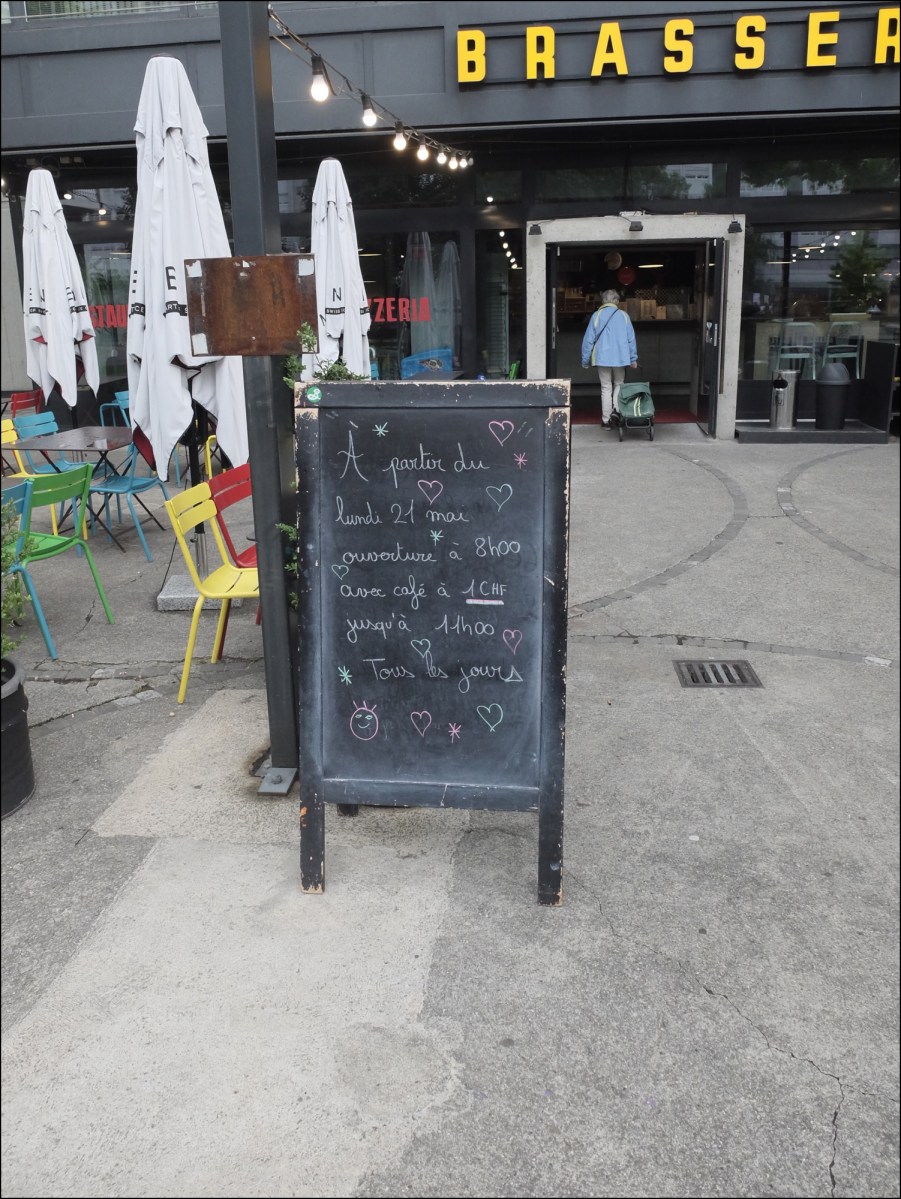 BRASSER
À partir du
lundi 21 mai
ouverture à 8h00
avec café à 1 CHF
jusqu'à 11h00
Tous les jours